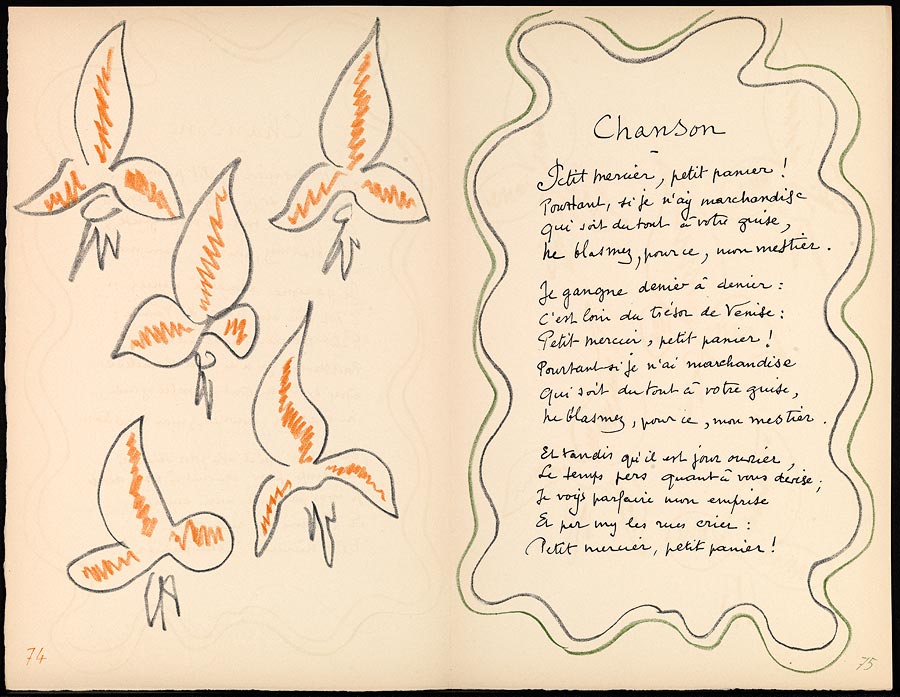 74
Chanson
Petit mercier, petit panier !
Pourtant, si je n'ay marchandise
Qui soit du tout à votre guise,
Ne blasmez, pour ce, mon mestier.
Je gangne denier à denier :
C'est loin du trésor de Venise :
Petit mercier, petit panier !
Pourtant si je n'ai marchandise
Qui soit du tout à votre guise,
Ne blasmez, pour ce, mon mestier.
Et tandis qu'il est jour ouvrier,
Le temps pers quant à vous devise ;
Je voys parfaire mon emprise
Et par my les rues crier :
Petit mercier, petit panier !
75